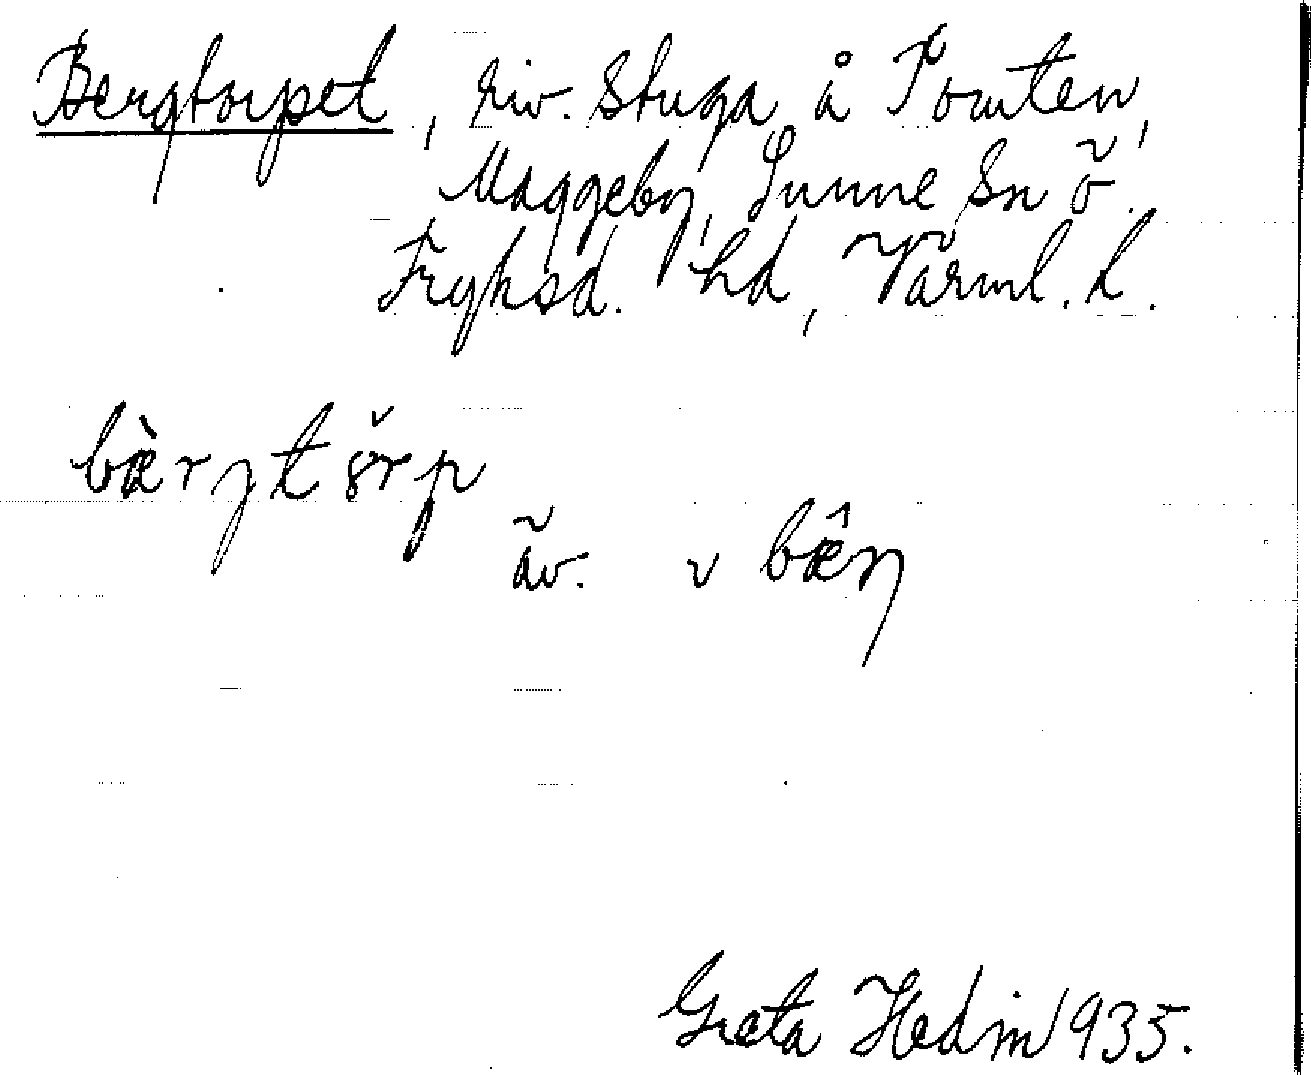 Bergtorpet, riv. stuga å Tomten,
Maggeby, Sunne sn ö.
Fryksd. hd, Värml. l.
bæ̀rjtŏ̤rp
äv. v bæ̂rj
Greta Hedin 1935.